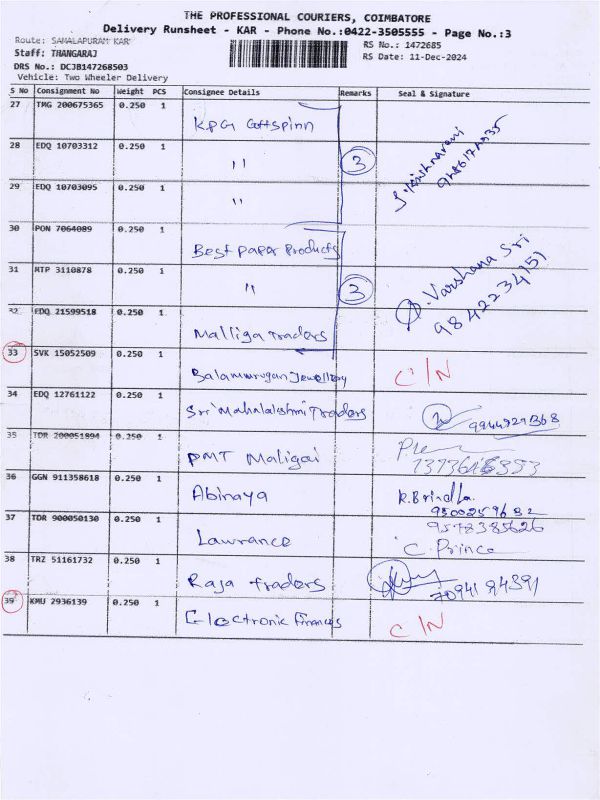 THE PROFESSIONAL COURIERS, COIMBATORE
Delivery Runsheet - KAR - Phone No.:0422-3505555 - Page No.:3
Route: SAMALAPURAM KAR
RS No.: 1472685
Staff: THANGARAJ
RS Date: 11-Dec-2024
DRS No.: DCJB147268503
Vehicle: Two Wheeler Delivery
S No Consignment No Weight PCS Consignee Details Remarks Seal & Signature
27 TMG 200675365 0.250 1
K.P.G Cottspinn
28 EDQ 10703312 0.250 1
" 3
29 EDQ 10703095 0.250 1
"
30 PON 7064089 0.250 1
Best paper products
31 RTP 3110878 0.250 1
" 3 Varshana Sri
9842234151
32 EDQ 21599518 0.250 1
Malliga Traders
33 SVK 15052509 0.250 1
Balamurugan Jewellery C/N
34 EDQ 12761122 0.250 1
Sri Mahalakshmi Traders 9944921368
35 TDR 200051894 0.250 1
PMT Maligai
36 GGN 911358618 0.250 1
Abinaya R.Brindha.
9500259632
37 TDR 900050130 0.250 1
9578385626
Lawrance C. Prince
38 TRZ 51161732 0.250 1
Raja traders 7094194391
39 KMU 2936139 0.250 1
Electronic Finances C/N